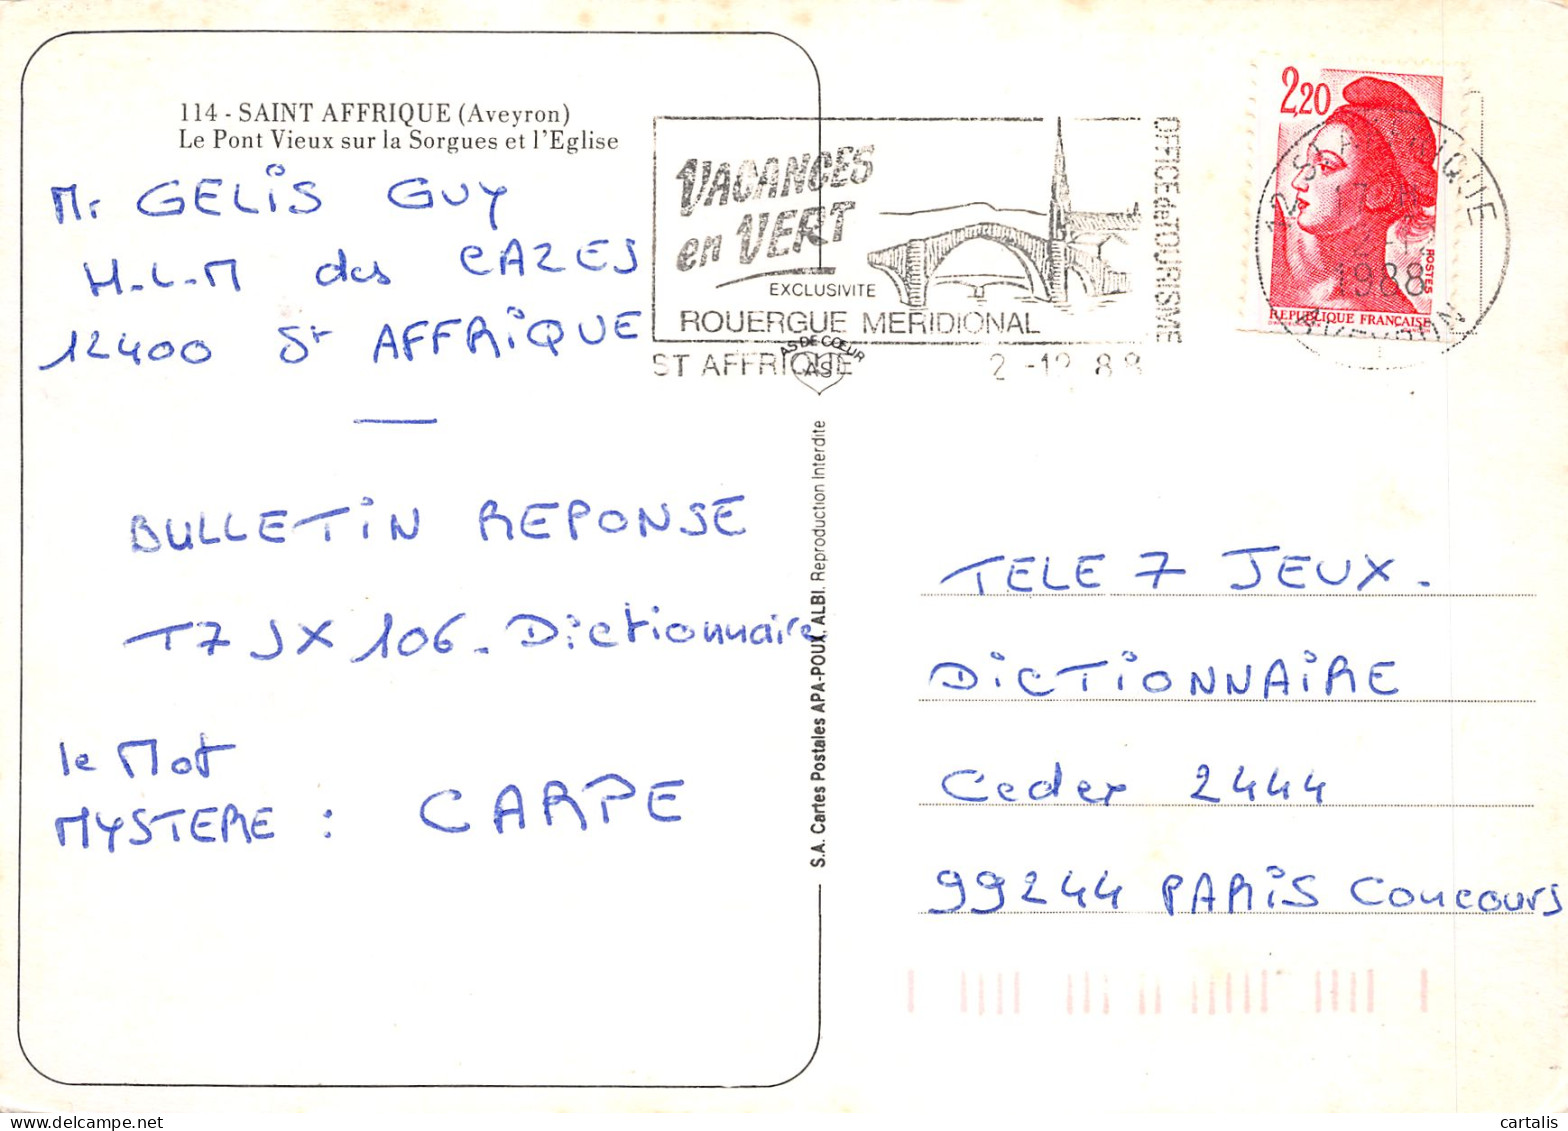 114 - SAINT AFFRIQUE (Aveyron)
Le Pont Vieux sur la Sorgues et l'Eglise
Mr GELiS GUY
H-L-M des CAZES
12400 St AFFRiQUE
BULLETiN REPONSE
T7 JX 106. Dictionnaire
le Mot
MYSTERE : CARPE
VACANCES
en VERT
EXCLUSIVITE
ROUERGUE MERIDIONAL
OFFICE de TOURISME
ST AFFRIQUE 2 -12 88
AS DE CŒUR
AS
S.A. Cartes Postales APA-POUX. ALBI. Reproduction Interdite
2,20
POSTES
REPUBLIQUE FRANCAISE
1988
AVEYRON
TELE 7 JEUX.
DiCTiONNAiRE
Cedex 2444
99244 PARiS Concours
cartalis